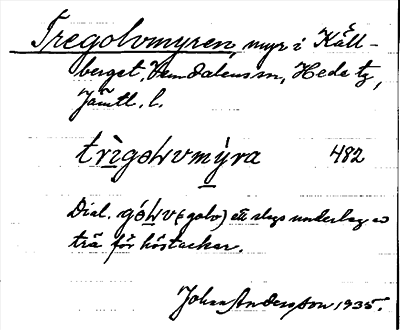 Tregolvmyren, myr i Käll-
berget, Vemdalens sn, Hede tg,
Jämtl. l.
trìgoɫvmỳra 482
Dial. góɫv (golv) ett slags underlag av
trä för höstackar.
Johan Andersson 1935.